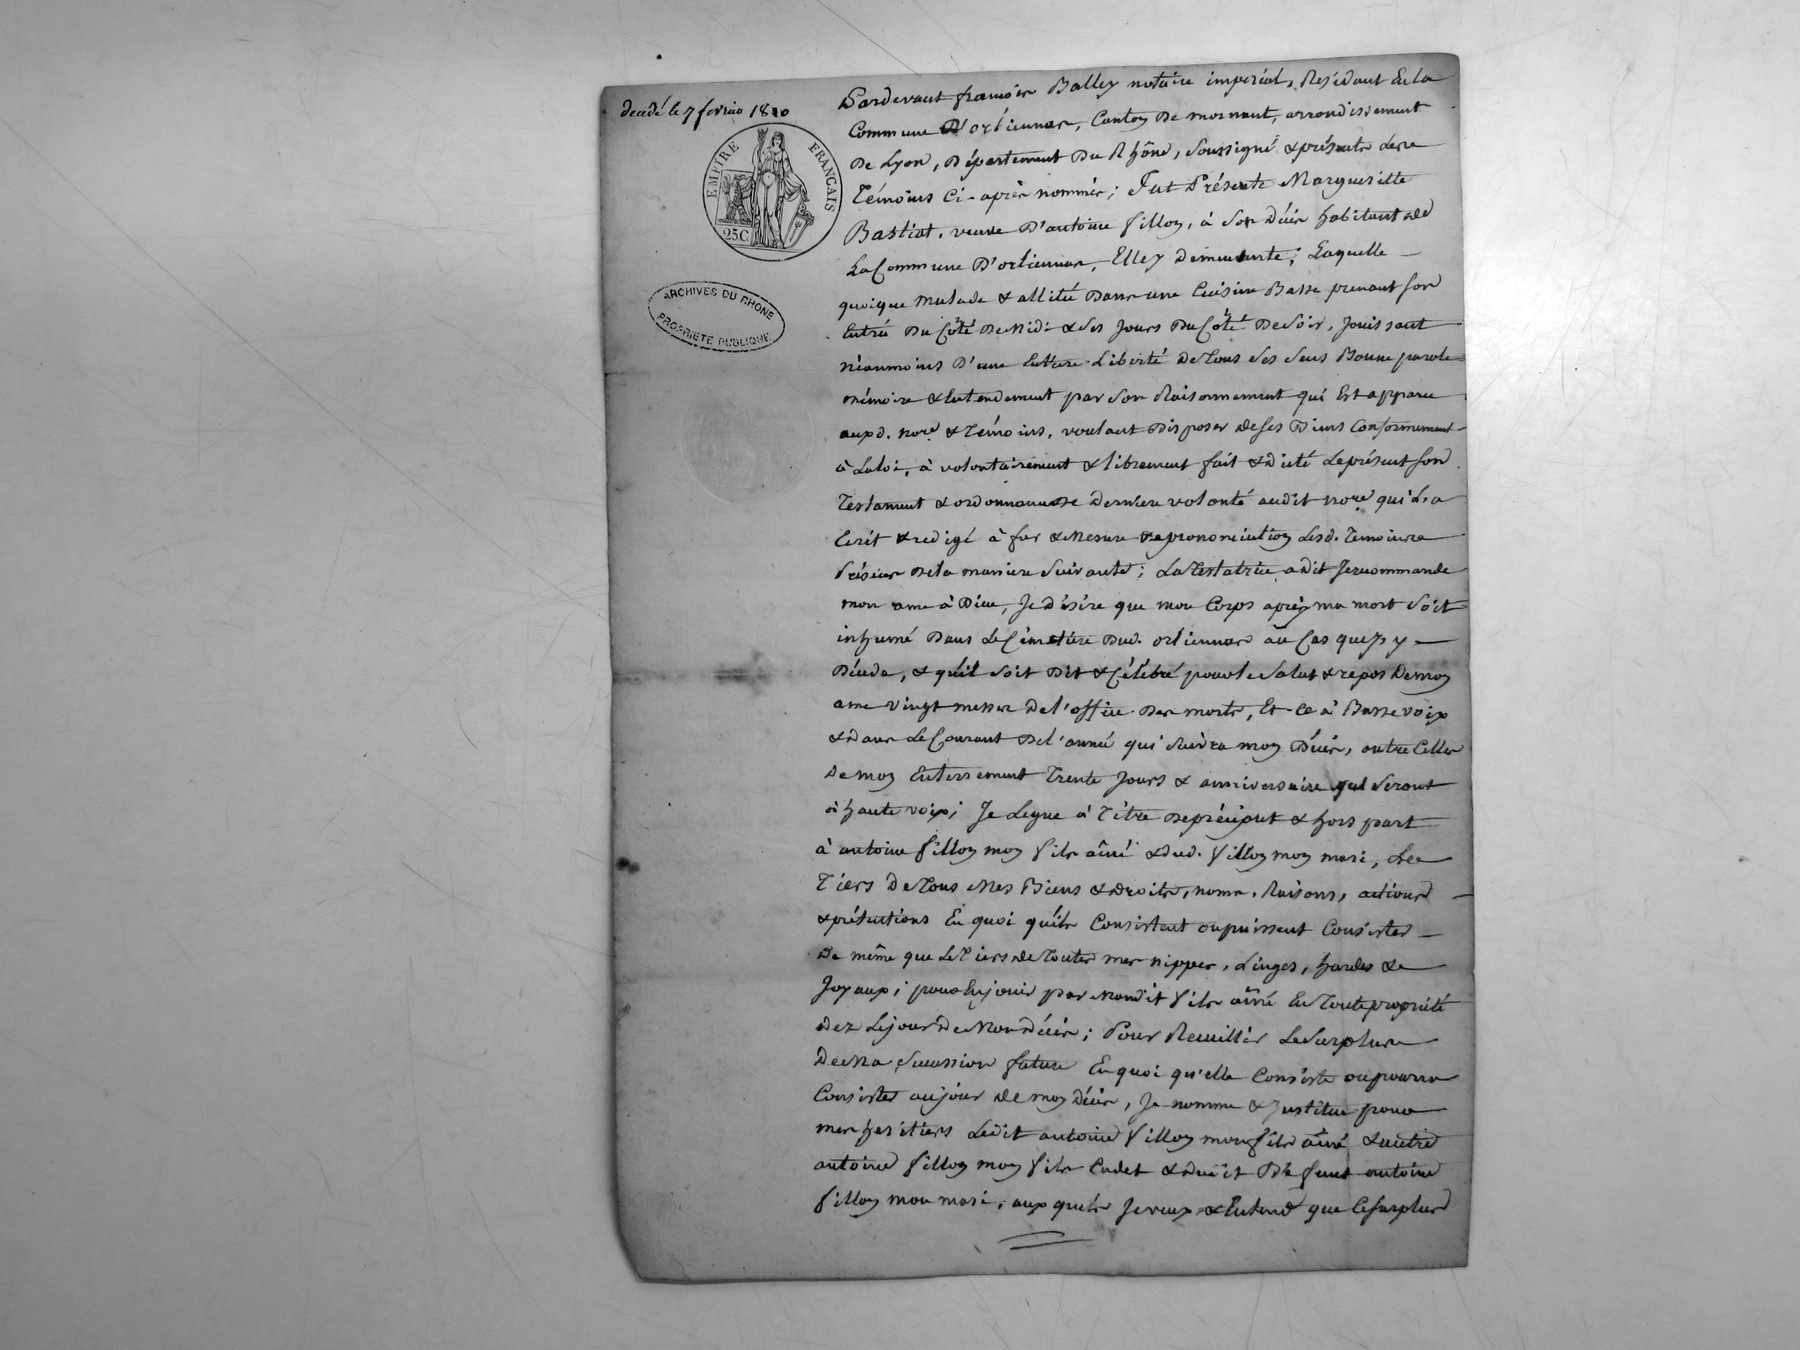 decédé le 7 fevrier 1810
EMPIRE FRANÇAIS
25C
ARCHIVES DU RHONE
PROPRIETE PUBLIQUE
Pardevant françois Balley notaire imperial, Residant En la
Commune D'orliennas, Canton De mornant, arrondissement
De Lyon, Département Du Rhône, soussigné & présents les
Témoins Ci-après nommés; Fut Présente Margueritte
Bastiat, veuve D'antoine fillon, à son décès habitant de
La Commune D'orliennas, Elle y demeurante; Laquelle
quoique malade & allitée Dans une Cuisine Basse prenant son
Entrée Du Côté De Midi & ses Jours Du Côté De soir, Jouissant
néanmoins D'une Entiere Liberté De Tous ses sens Bonne parole
mémoire & Entendement par son Raisonnement qui Est apparu
auxd. nore. & Témoins, voulant Disposer de ses Biens Conformement
à La loi, à volontairement & librement fait & dicté Le présent son
Testament & ordonnance de derniere volonté audit nore. qui L'a
Ecrit & redigé à fur & Mesure de prononciation Lesd. Temoins
Présens De la maniere suivante; La Testatrice a dit Je recommande
mon ame à Dieu, Je désire que mon Corps après ma mort soit
inhumé Dans Le Cimetière Dud. orliennas au Cas que J'y
Décede, & qu'il soit Dit & Célébré pour le salut & repos De mon
ame vingt messes De l'office Des morts, Et ce à Basse voix
& dans Le Courant De l'année qui suivra mon Décès, outre Celles
De mon Enterrement Trente Jours & anniversaire qui seront
à haute voix; Je Legue à Titre De préciput & hors part
à antoine fillon mon fils aîné & dud. fillon mon mari, Le
Tiers De Tous Mes Biens & droits, noms, Raisons, actions
& prétentions En quoi qu'ils Consistent ou puissent Consister
De même que Le Tiers de Toutes mes nippes, Linges, hardes &
Joyaux; pour En jouir par Mondit fils aîné En Toute propriété
dez Le jour De Mon décès; Pour Recuillir Le surplus
De Ma succession future En quoi qu'elle Consiste ou pourra
Consister au jour de mon décès, Je nomme & Institue pour
mes heritiers Ledit antoine fillon mon fils aîné & autre
antoine fillon mon fils Cadet & dudit Défunt antoine
fillon mon mari, auxquels Je veux & Entend que Ce surplus